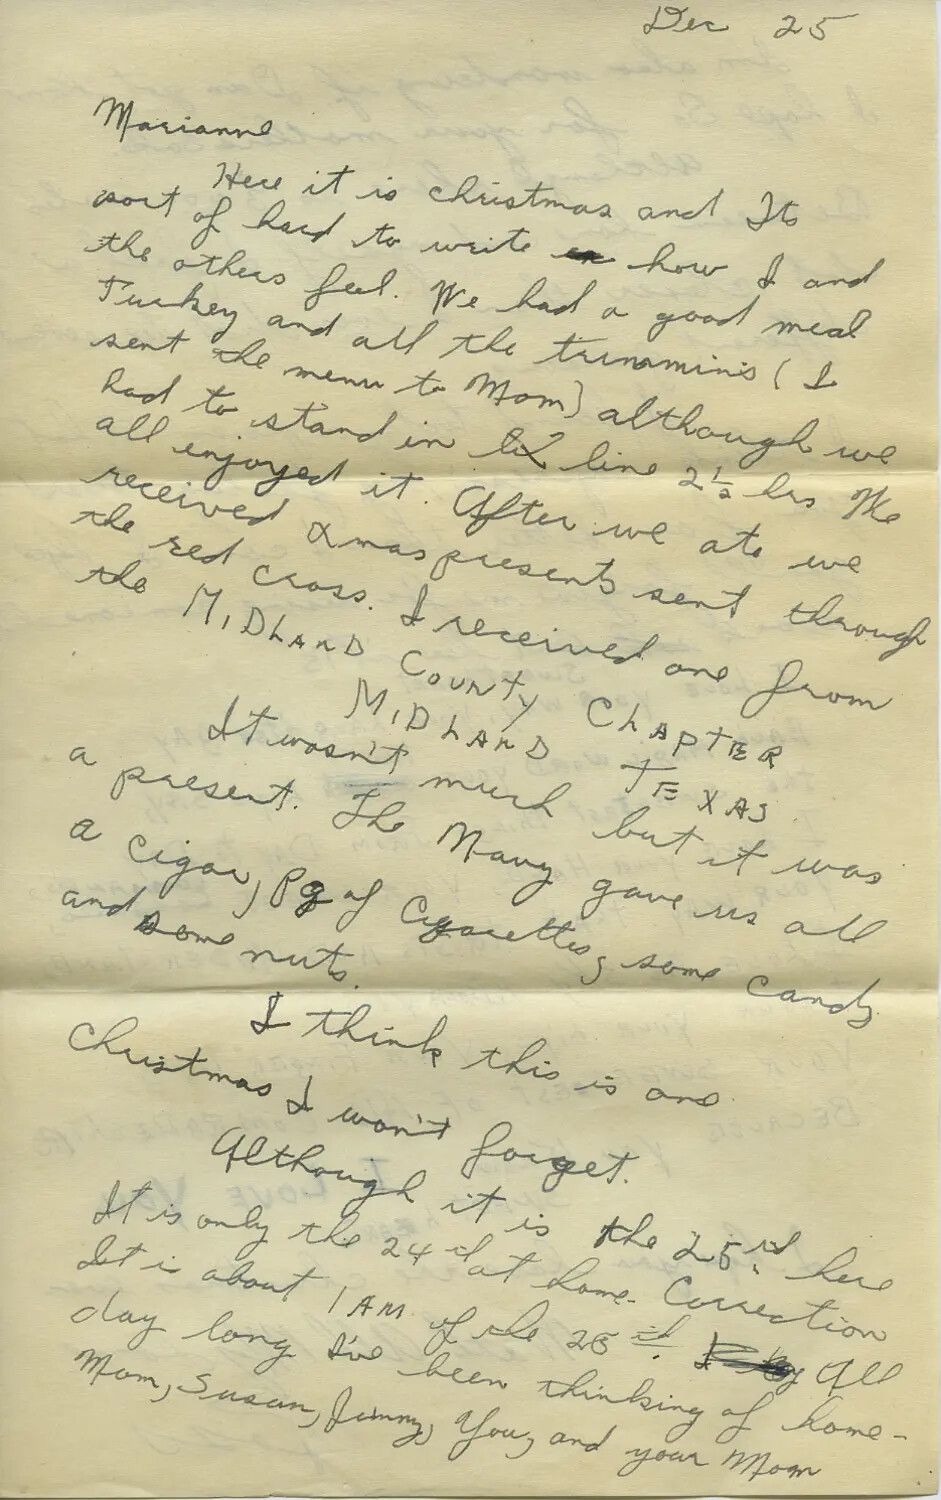 Dec 25
Marianne
Here it is christmas and Its
sort of hard to write how I and
the others feel. We had a good meal
Turkey and all the trimminis (I
sent the menu to Mom) although we
had to stand in line 2½ hrs We
all enjoyed it. After we ate we
received Xmas presents sent through
the red cross. I received one from
the MIDLAND COUNTY CHAPTER
MIDLAND TEXAS
It wasn't much but it was
a present. The Navy gave us all
a cigar, pg of cigarettes, some candy
and some nuts.
I think this is one
Christmas I won't forget.
Although it is the 25rd here
It is only the 24rd at home. Correction
It is about 1 AM of the 25rd. All
day long I've been thinking of home-
Mom, Susan, Jimmy, You, and your Mom